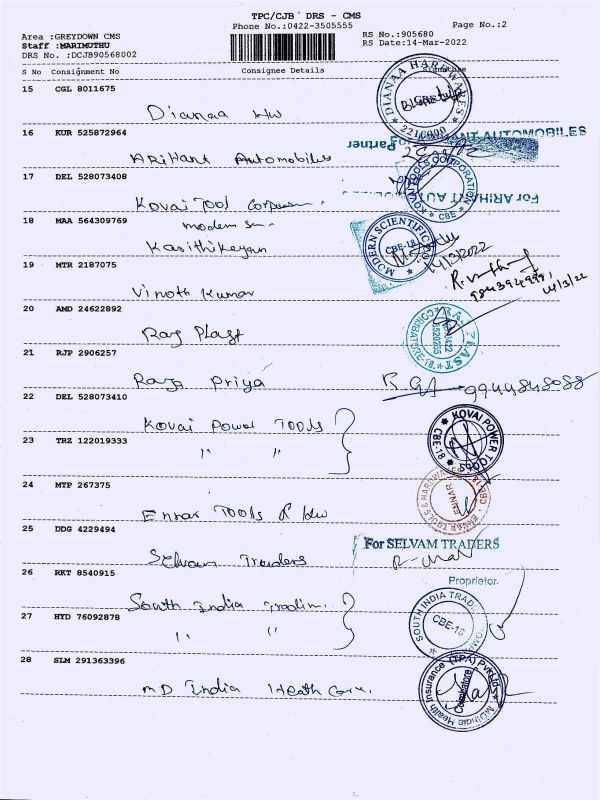 TPC/CJB DRS - CMS
Phone No.:0422-3505555
Page No.:2
Area :GREYDOWN CMS
Staff :MARIMUTHU
DRS No. :DCJB90568002
RS No.:905680
RS Date:14-Mar-2022
S No Consignment No Consignee Details Signature
15 CGL 8011675
Dianaa Hw
DIANAA HARDWARES
2216000
16 KUR 525872964
Arihant Automobiles
For ARIHANT AUTOMOBILES
Partner
17 DEL 528073408
Kovai Tool Corporation
KOVAI TOOLS CORPORATION
CBE
For ARIHANT AUT
18 MAA 564309769
modern
Karthikeyan
MODERN SCIENTIFIC CO.
CBE-18
14/3/2022
19 MTR 2187075
Vinoth Kumar
14/3/22
20 AMD 24622892
Raj Plast
PLAST
COIMBATORE-18
21 RJP 2906257
Raja Priya
9944848088
22 DEL 528073410
Kovai Power Tools
KOVAI POWER TOOLS
CBE-18
23 TRZ 122019333
" "
24 MTP 267375
Ennar Tools & Hw
ENNAR TOOLS & HARDWARE
ENNAR
25 DDG 4229494
Selvam Traders
For SELVAM TRADERS
Proprietor.
26 RKT 8540915
South India Tradin.
SOUTH INDIA TRAD
CBE-18
27 HYD 76092878
" "
28 SLM 291363396
MD India Heath Care.
MDIndia Health Insurance (TPA) Pvt. Ltd.
Coimbatore